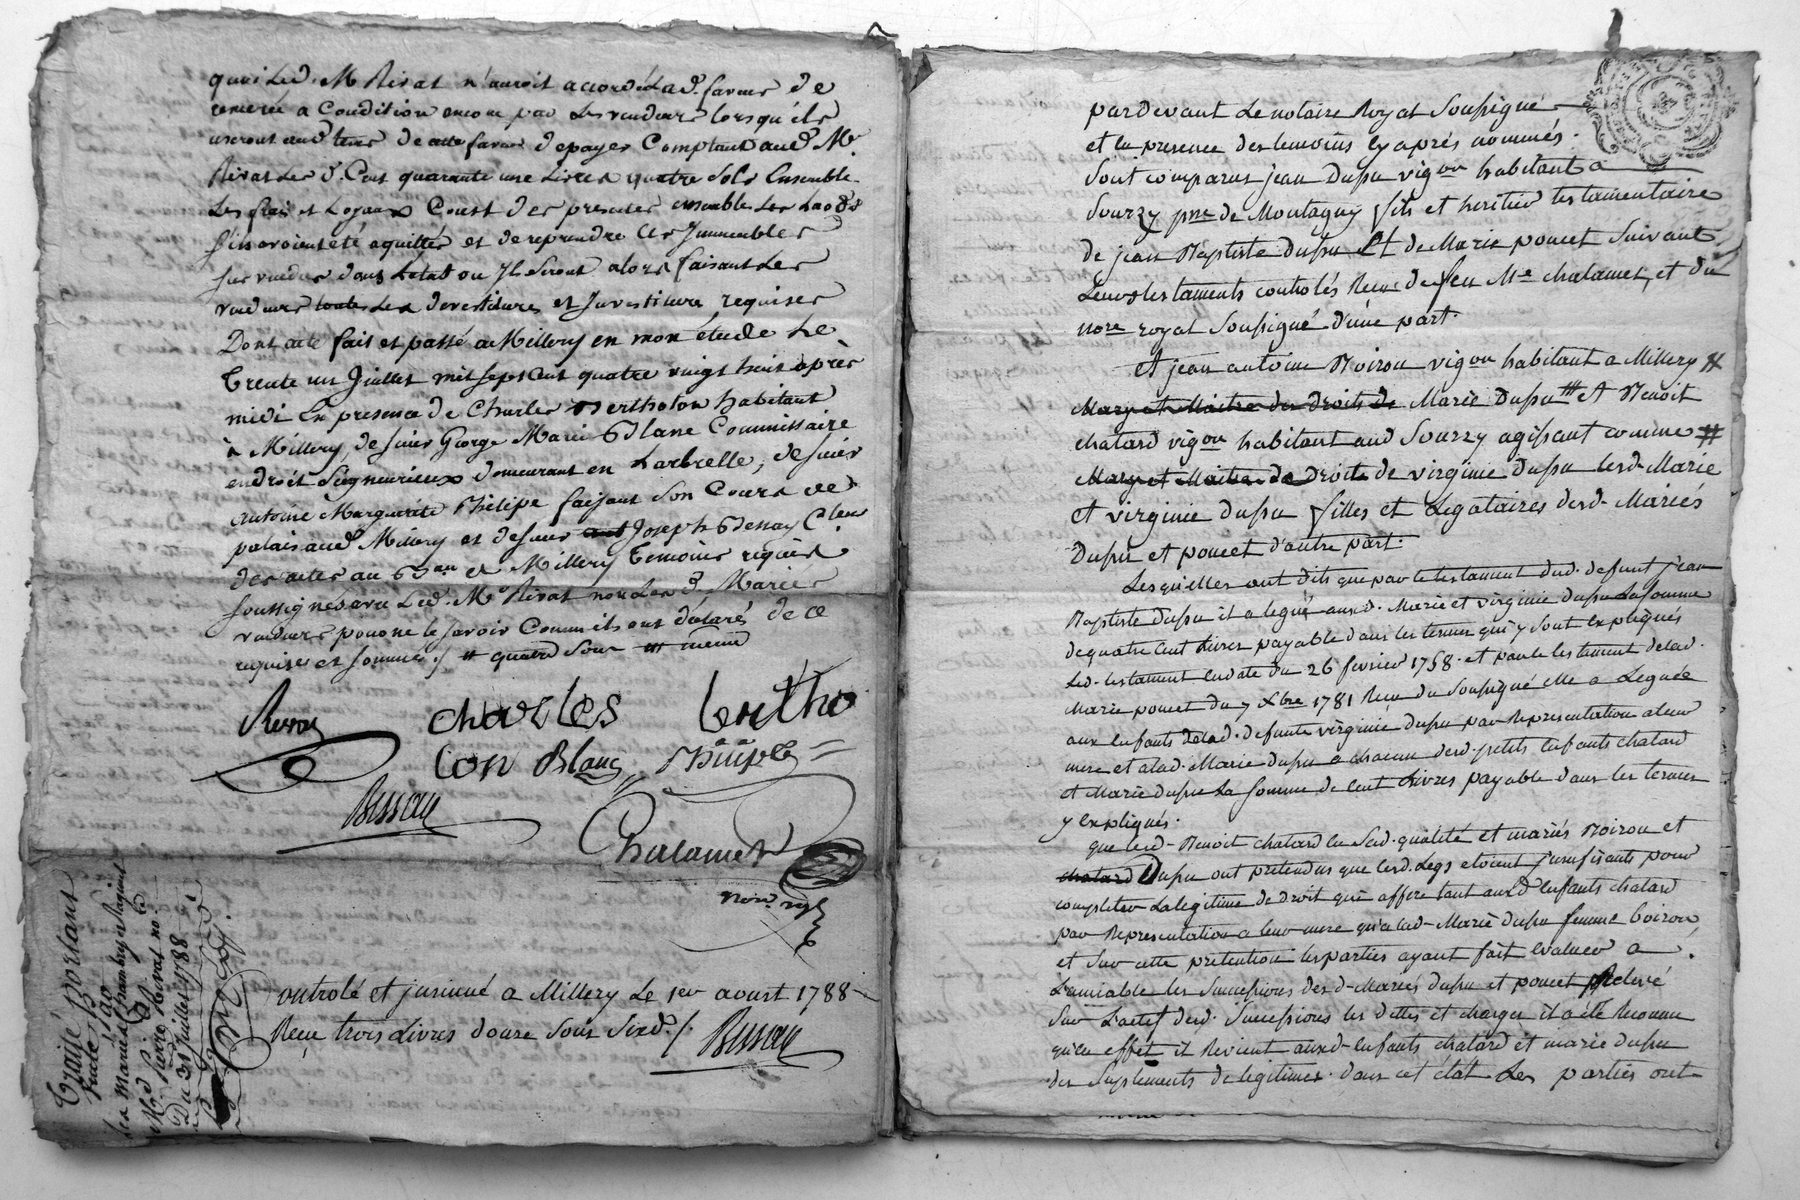 quoi led. Mr Rivat n'auroit accordé lad. faveur de
remeré a Condition encore par les vendeurs lorsqu'ils
useront aud. tems de cette faveur de payer Comptant aud. Mr
Rivat les d. Cent quarante une Livres quatre sols Ensemble
les frais et Loyaux Coust des presentes ensemble les Laods
s'ils avoient été aquittés et de reprendre les Immeubles
sus vendus dans letat ou Ils seront alors faisant les
vendeurs toutes les devestitures et Investiture requises
Dont acte fait et passé a Millery en mon étude Le
trente un Juillet mil sept cent quatre vingt huit après
midi En presence de Charles Bertholon habitant
à Millery, de sieur George Marie Blanc Commissaire
en droit Seigneuriaux demeurant en Larbrelle, de sieur
Antoine Marguerite Phélipe faisant son Cours de
palais aud. Millery et de sieur Joseph Bessay C.leur
des actes au Bau de Millery temoins requis
soussignés avec Led. Mr Rivat non les d. Mariés
vendeurs pour ne le savoir Comm ils ont déclaré de ce
requis et sommés ./. # quatre sous ## meme
Rivat
Charles bertho
lon Blanc Phélipe
Bessay
Chalamet
nore. roy.
Controlé et insinué a Millery Le 1er aoust 1788
Reçu trois Livres douze sous six d. /. Bessay
Les Mariés
Mr Pierre Rivat no.
Du 31 Juillet 1788
pardevant Le notaire Royal Soussigné
et en presence des temoins cy aprés nommés.
Sont comparus jean Dupu vigon habitant a
Sourzy psse de Montagny fils et heritier testamentaire
de jean Baptiste Dupu Et de Marie poncet Suivant
Leurs testaments controlés Recus de feu Me chalamet, et du
nore royal Soussigné d'une part.
Et jean antoine Boiron vigon habitant a Millery #
Mary et Maitre des droits de Marie Dupu ## Et Benoit
chatard vigon habitant aud Sourzy agissant comme #
Mary et Maitre de Droits de virginie Dupu lesd. Marie
et virginie Dupu filles et Legataires desd. Mariés
Dupu et poncet d'autre part.
Lesquelles ont dits que par le testament dud. defunt jean
Baptiste Dupu il a legué auxd. Marie et virginie Dupu La somme
de quatre cent livres payable dans les termes qui y sont expliqués
Led. testament endate du 26 fevrier 1758. et par le testament delad.
Marie poncet du 7 xbre 1781 Recu du Soussigné elle a Leguée
aux enfants delad. defunte virginie Dupu par Representation a leur
mere et alad. Marie Dupu a chacun desd. petits enfants chatard
et Marie Dupu la somme de cent Livres payable dans les termes
y expliqués.
que led. Benoit chatard en sad. qualité et mariés Boiron et
chatard Dupu ont pretendus que lesd. Legs etoient jnsufisants pour
completer La legitime de droit qui affere tant auxd enfants chatard
par Representation a leur mere qu'a lad. Marie Dupu femme boiron,
et sur cette pretention les parties ayant fait evaluer a
L'amiable les successions desd. Mariés Dupu et poncet Relevé
sur L'actif desd. Successions les dettes et charges il a été Reconnu
qu'en effet il Revient auxd. enfants chatard et marie Dupu
des Suplements de legitimes. dans cet état Les parties ont